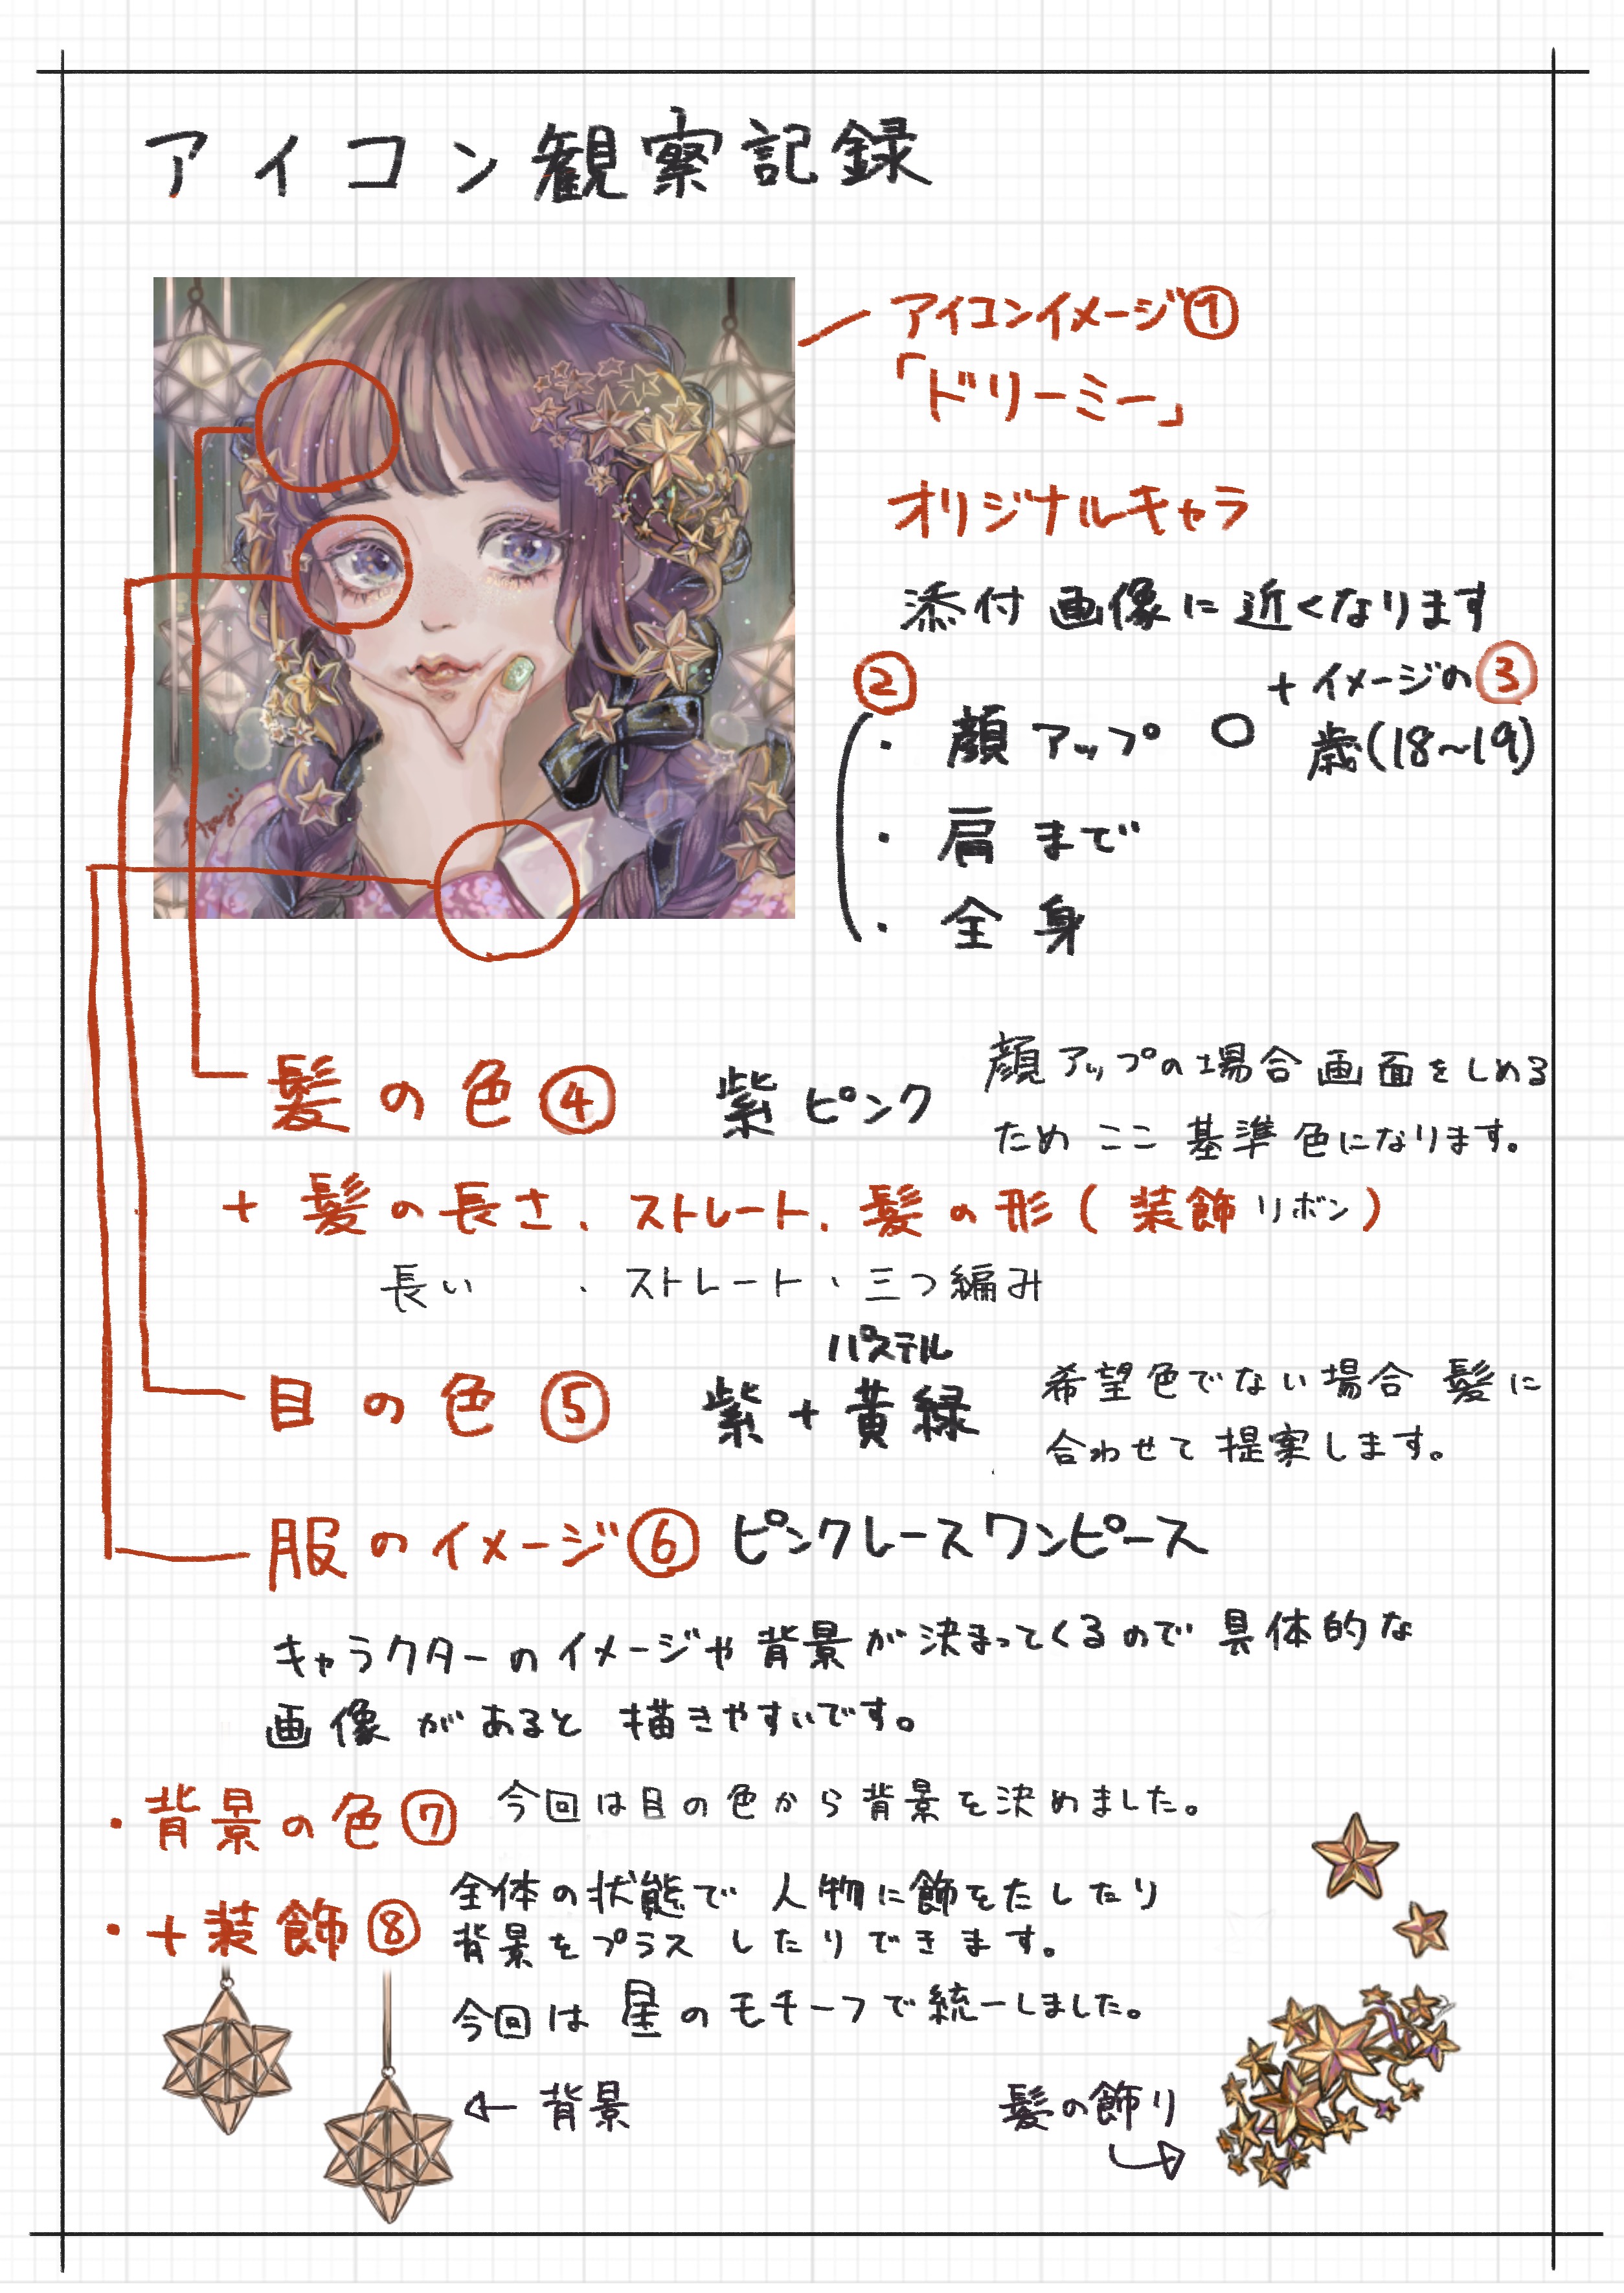 アイコン観察記録
アイコンイメージ①
「ドリーミー」
オリジナルキャラ
添付画像に近くなります
②
+イメージの③
歳(18~19)
・顔アップ ○
・肩まで
・全身
髪の色④ 紫ピンク
顔アップの場合画面をしめる
ためここ基準色になります。
+髪の長さ、ストレート、髪の形(装飾リボン)
長い、ストレート、三つ編み
パステル
目の色⑤ 紫+黄緑
希望色でない場合髪に
合わせて提案します。
服のイメージ⑥ ピンクレースワンピース
キャラクターのイメージや背景が決まってくるので具体的な
画像があると描きやすいです。
・背景の色⑦ 今回は目の色から背景を決めました。
・+装飾⑧ 全体の状態で人物に飾をたしたり
背景をプラスしたりできます。
今回は星のモチーフで統一しました。
←背景
髪の飾り